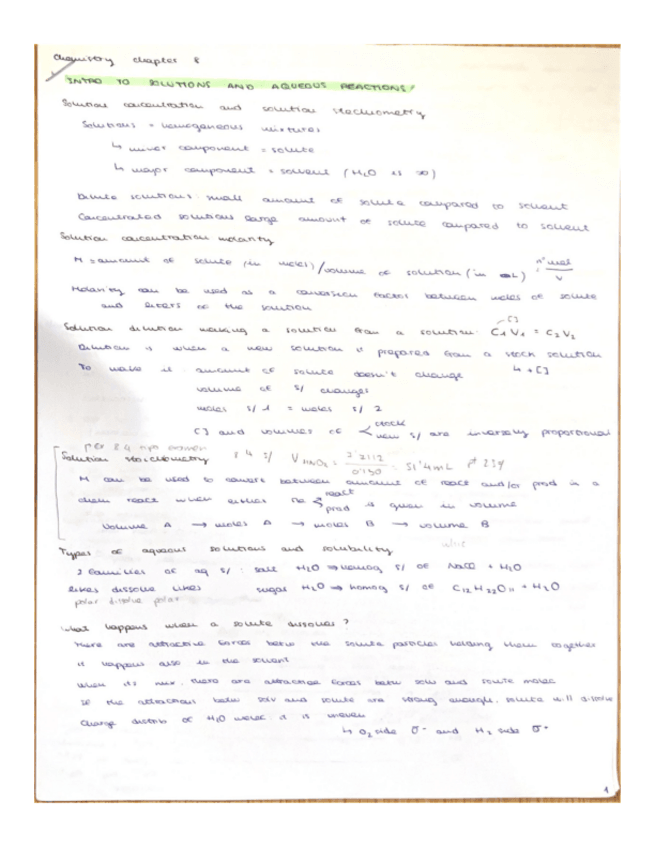 Chemistry chapter 8
INTRO TO SOLUTIONS AND AQUEOUS REACTIONS
Solution concentration and solution stechiometry
Solutions = homogeneous mixtures
↳ minor component = solute
↳ major component = solvent (H2O is ∞)
Dilute solutions: small amount of solute compared to solvent
Concentrated solutions large amount of solute compared to solvent
Solution concentration molarity
M = amount of solute (in moles) / volume of solution (in L) nº mol / V
Molarity can be used as a conversion factor between moles of solute
and liters of the solution
Solution dilution making a solution from a solution: C1 V1 = C2 V2
Dilution is when a new solution is prepared from a stock solution
To make it: amount of solute doesn't change ↳ + [ ]
volume of s/ changes
moles s/ 1 = moles s/ 2
[ ] and volumes of < stock new s/ are inversely proportional
Solution stoichiometry 8.4 s/ V HNO3 = = 51'4 mL
M can be used to convert between amount of react and/or prod in a
chem react when either the < react prod is given in volume
Volume A → moles A → moles B → volume B
Types of aqueous solutions and solubility
2 families of aq s/ : salt H2O ⇒ homog s/ of NaCl + H2O
likes dissolve likes sugar H2O ⇒ homog s/ of C12 H22 O11 + H2O
polar dissolve polar
What happens when a solute dissolves?
There are attractive forces betw the solute particles holding them together
it happens also in the solvent
when its mix, there are attractive forces betw solv and solute molec
If the attractions betw solv and solute are strong enough, solute will dissolve
Charge distrib of H2O molec it is uneven
↳ O2 side σ- and H2 side σ+
1